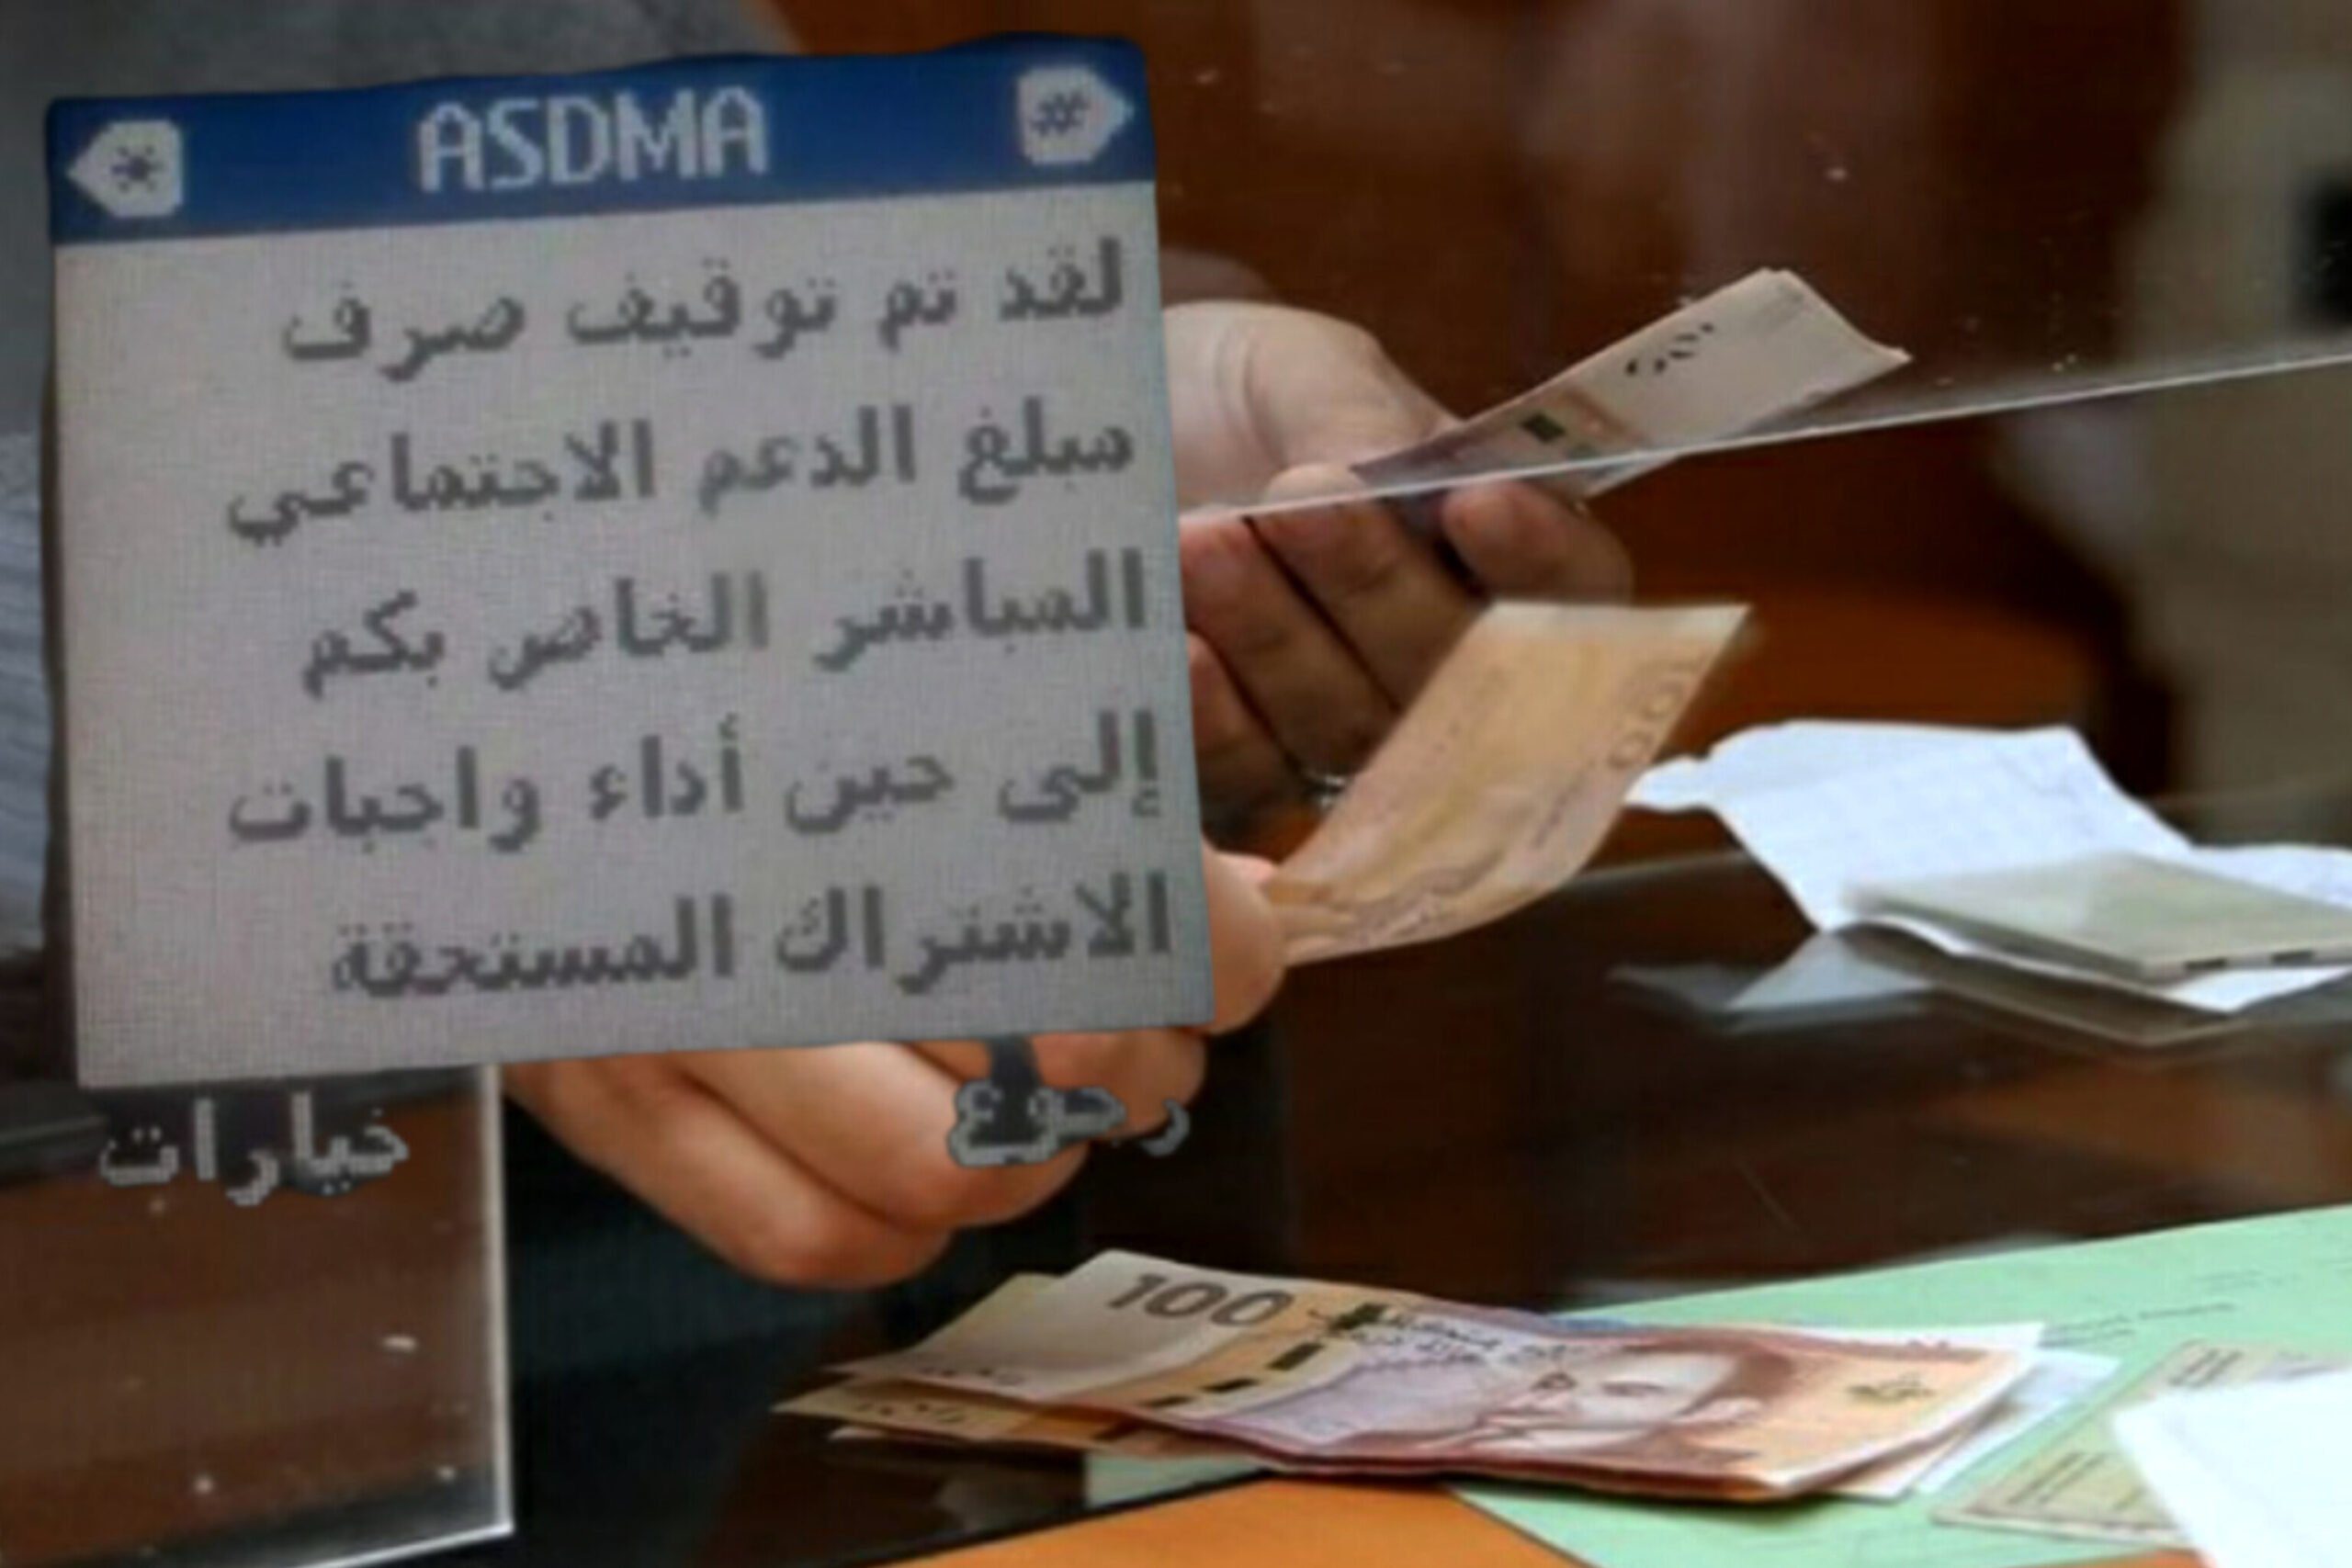 ASDMA
لقد تم توقيف صرف
مبلغ الدعم الاجتماعي
المباشر الخاص بكم
إلى حين أداء واجبات
الاشتراك المستحقة
رجوع
خيارات
100